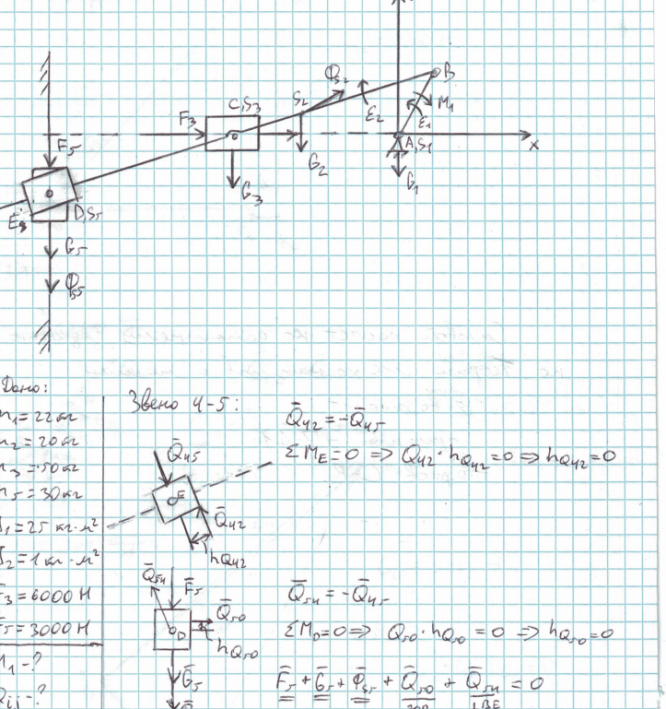 B
Φ̄s₂
S₂
ε₂
M₁
ε₁
C,S₃
F₃
A,S₁
x
G₂
G₁
G₃
F₅
D,S₅
G₅
Φs₅
Дано:
m₁=22кг
m₂=20кг
m₃=50кг
m₅=30кг
J₁=25 кг·м²
J₂=1 кг·м²
F₃=6000 Н
F₅=3000 Н
M₁-?
Qij-?
Звено 4-5:
Q̄₄₂=-Q̄₄₅
ΣM_E=0 => Q₄₂·h_Q₄₂=0 => h_Q₄₂=0
Q̄₄₅
E
Q̄₄₂
h_Q₄₂
Q̄₅₄
F̄₅
Q̄₅₀
D
h_Q₅₀
Ḡ₅
Q̄₅₄=-Q̄₄₅
ΣM_D=0 => Q₅₀·h_Q₅₀=0 => h_Q₅₀=0
F̄₅+Ḡ₅+Φ̄s₅+Q̄₅₀+Q̄₅₄=0
⊥BE